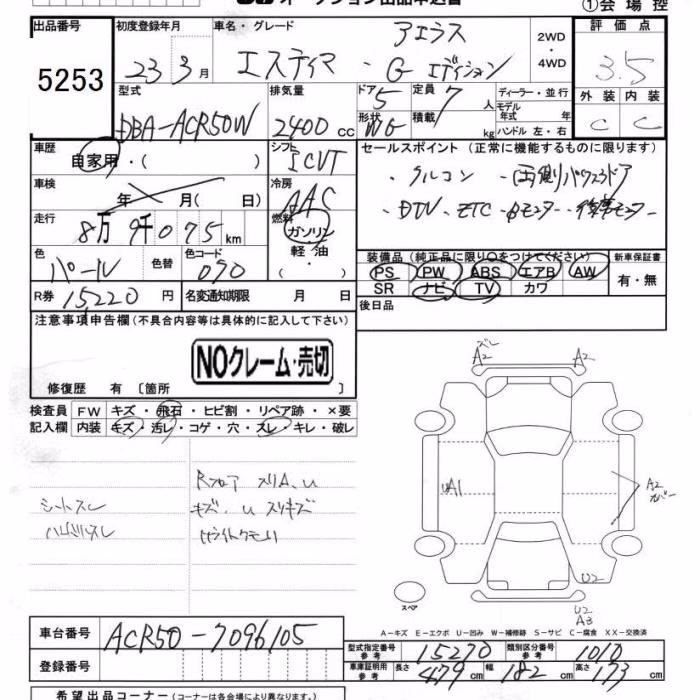 オークション出品申込書
①会場控
出品番号 初度登録年月 車名・グレード アエラス 2WD・4WD 評価点
5253 23年3月 エスティマ・Gエディション 3.5
型式 排気量 ドア 5 定員 7人 ディーラー・並行 外装 内装
DBA-ACR50W 2400cc 形状 WG 積載 kg モデル年式 年式 ハンドル 左・右 C C
車歴 自家用・( ) シフト ICVT セールスポイント (正常に機能するものに限ります)
車検 年 月( 日) 冷房 AAC ・クルコン ・両側パワスラドア
走行 8万9千075km 燃料 ガソリン・軽油・( ) ・DTV ・ETC ・Bモニター
色 パール 色替 色コード 070 装備品 (純正品に限り○をつけてください) 新車保証書
PS PW ABS エアB AW 有・無
R券 15220円 名変通知期限 月 日 SR ナビ TV カワ
注意事項申告欄 (不具合内容等は具体的に記入して下さい) 後日品
NOクレーム・売切
修復歴 有 〔箇所 〕
検査員 FW キズ・飛石・ヒビ割・リペア跡・×要
記入欄 内装 キズ・汚レ・コゲ・穴・スレ・キレ・破レ
ズレ
A2 A2
Rフロア スリA、U
シートスレ キズ、U スリキズ
ハンドルスレ Hライトクモリ
UA1 A2
カバー
U2
スペア
U2
A3
A-キズ E-エクボ U-凹み W-補修跡 S-サビ C-腐食 XX-交換済
車台番号 ACR50-7096105
型式指定番号 参考 15270 類別区分番号 参考 1010
登録番号
車庫証明用 参考 長さ 479cm 幅 182cm 高さ 173cm
希望出品コーナー (コーナーは各会場により異なります)